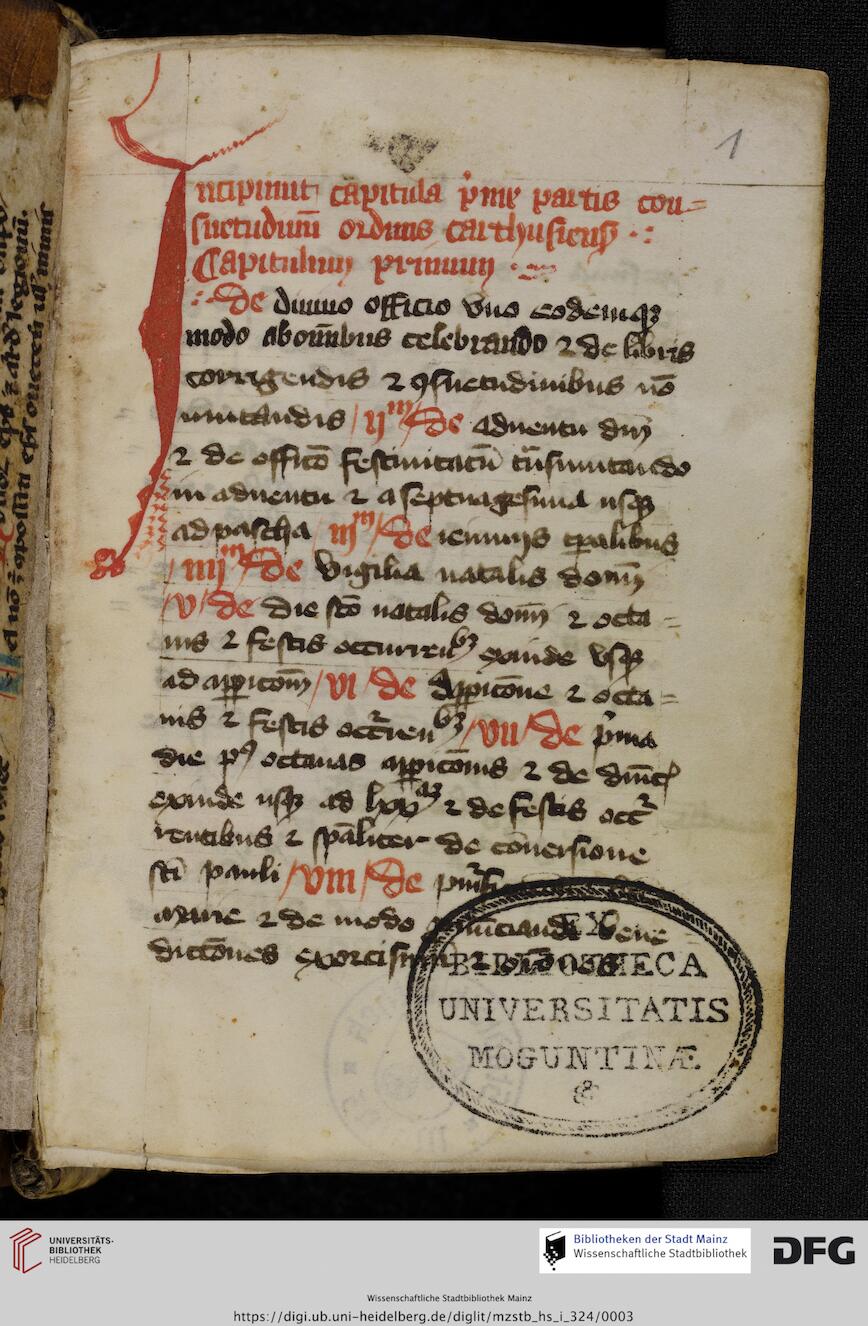 1
Incipiunt capitula p̃me partis con=
suetudinũ ordinis carthusiensꝭ
Capitulum primum
De diuino officio vno eodemqꝫ
modo ab oĩnibus celebrando ⁊ de libris
corrigendis ⁊ ꝯsuetudinibus nõ
mutandis / ijᵐ / De aduentu dnĩ
⁊ de officõ festiuitatũ
in aduentu ⁊ a septuagesima usqꝫ
ad pascha / iijᵐ / De ieiunijs tꝑalibus
/ iiijᵐ / De vigilia natalis domĩ
/ v / de die sctõ natalis domĩ ⁊ octa=
uis ⁊ festis occurrenᵇꝫ exinde vsqꝫ
ad apparicom̃ / vi / de Apparicõne ⁊ octa=
uis ⁊ festis occr̃renᵇꝫ / vii / de p̃ma
die pꝰ octauas apparicõnis ⁊ de
exinde usqꝫ ad lxxᵃᵐ ⁊ de festis occr̃
rentibus ⁊ sp̃aliter de cõuersione
scti pauli / viii / De
marie ⁊ de modo bene
dictõnes
EX
BIBLIOTHECA
UNIVERSITATIS
MOGUNTINÆ
UNIVERSITÄTS-
BIBLIOTHEK
HEIDELBERG
Bibliotheken der Stadt Mainz
Wissenschaftliche Stadtbibliothek
DFG
Wissenschaftliche Stadtbibliothek Mainz
https://digi.ub.uni-heidelberg.de/diglit/mzstb_hs_i_324/0003